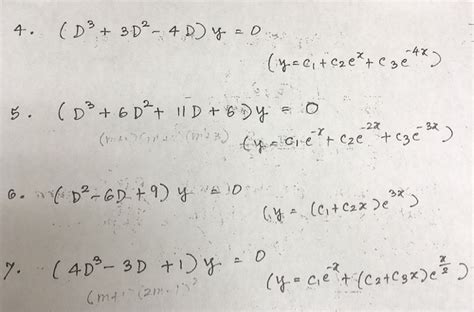 4. (D³ + 3D² - 4D) y = 0
(y = c₁ + c₂eˣ + c₃e⁻⁴ˣ)
5. (D³ + 6D² + 11D + 6) y = 0
(y = c₁e⁻ˣ + c₂e⁻²ˣ + c₃e⁻³ˣ)
6. (D² - 6D + 9) y = 0
(y = (c₁ + c₂x) e³ˣ)
7. (4D³ - 3D + 1) y = 0
(y = c₁e⁻ˣ + (c₂ + c₃x) e^(x/2))